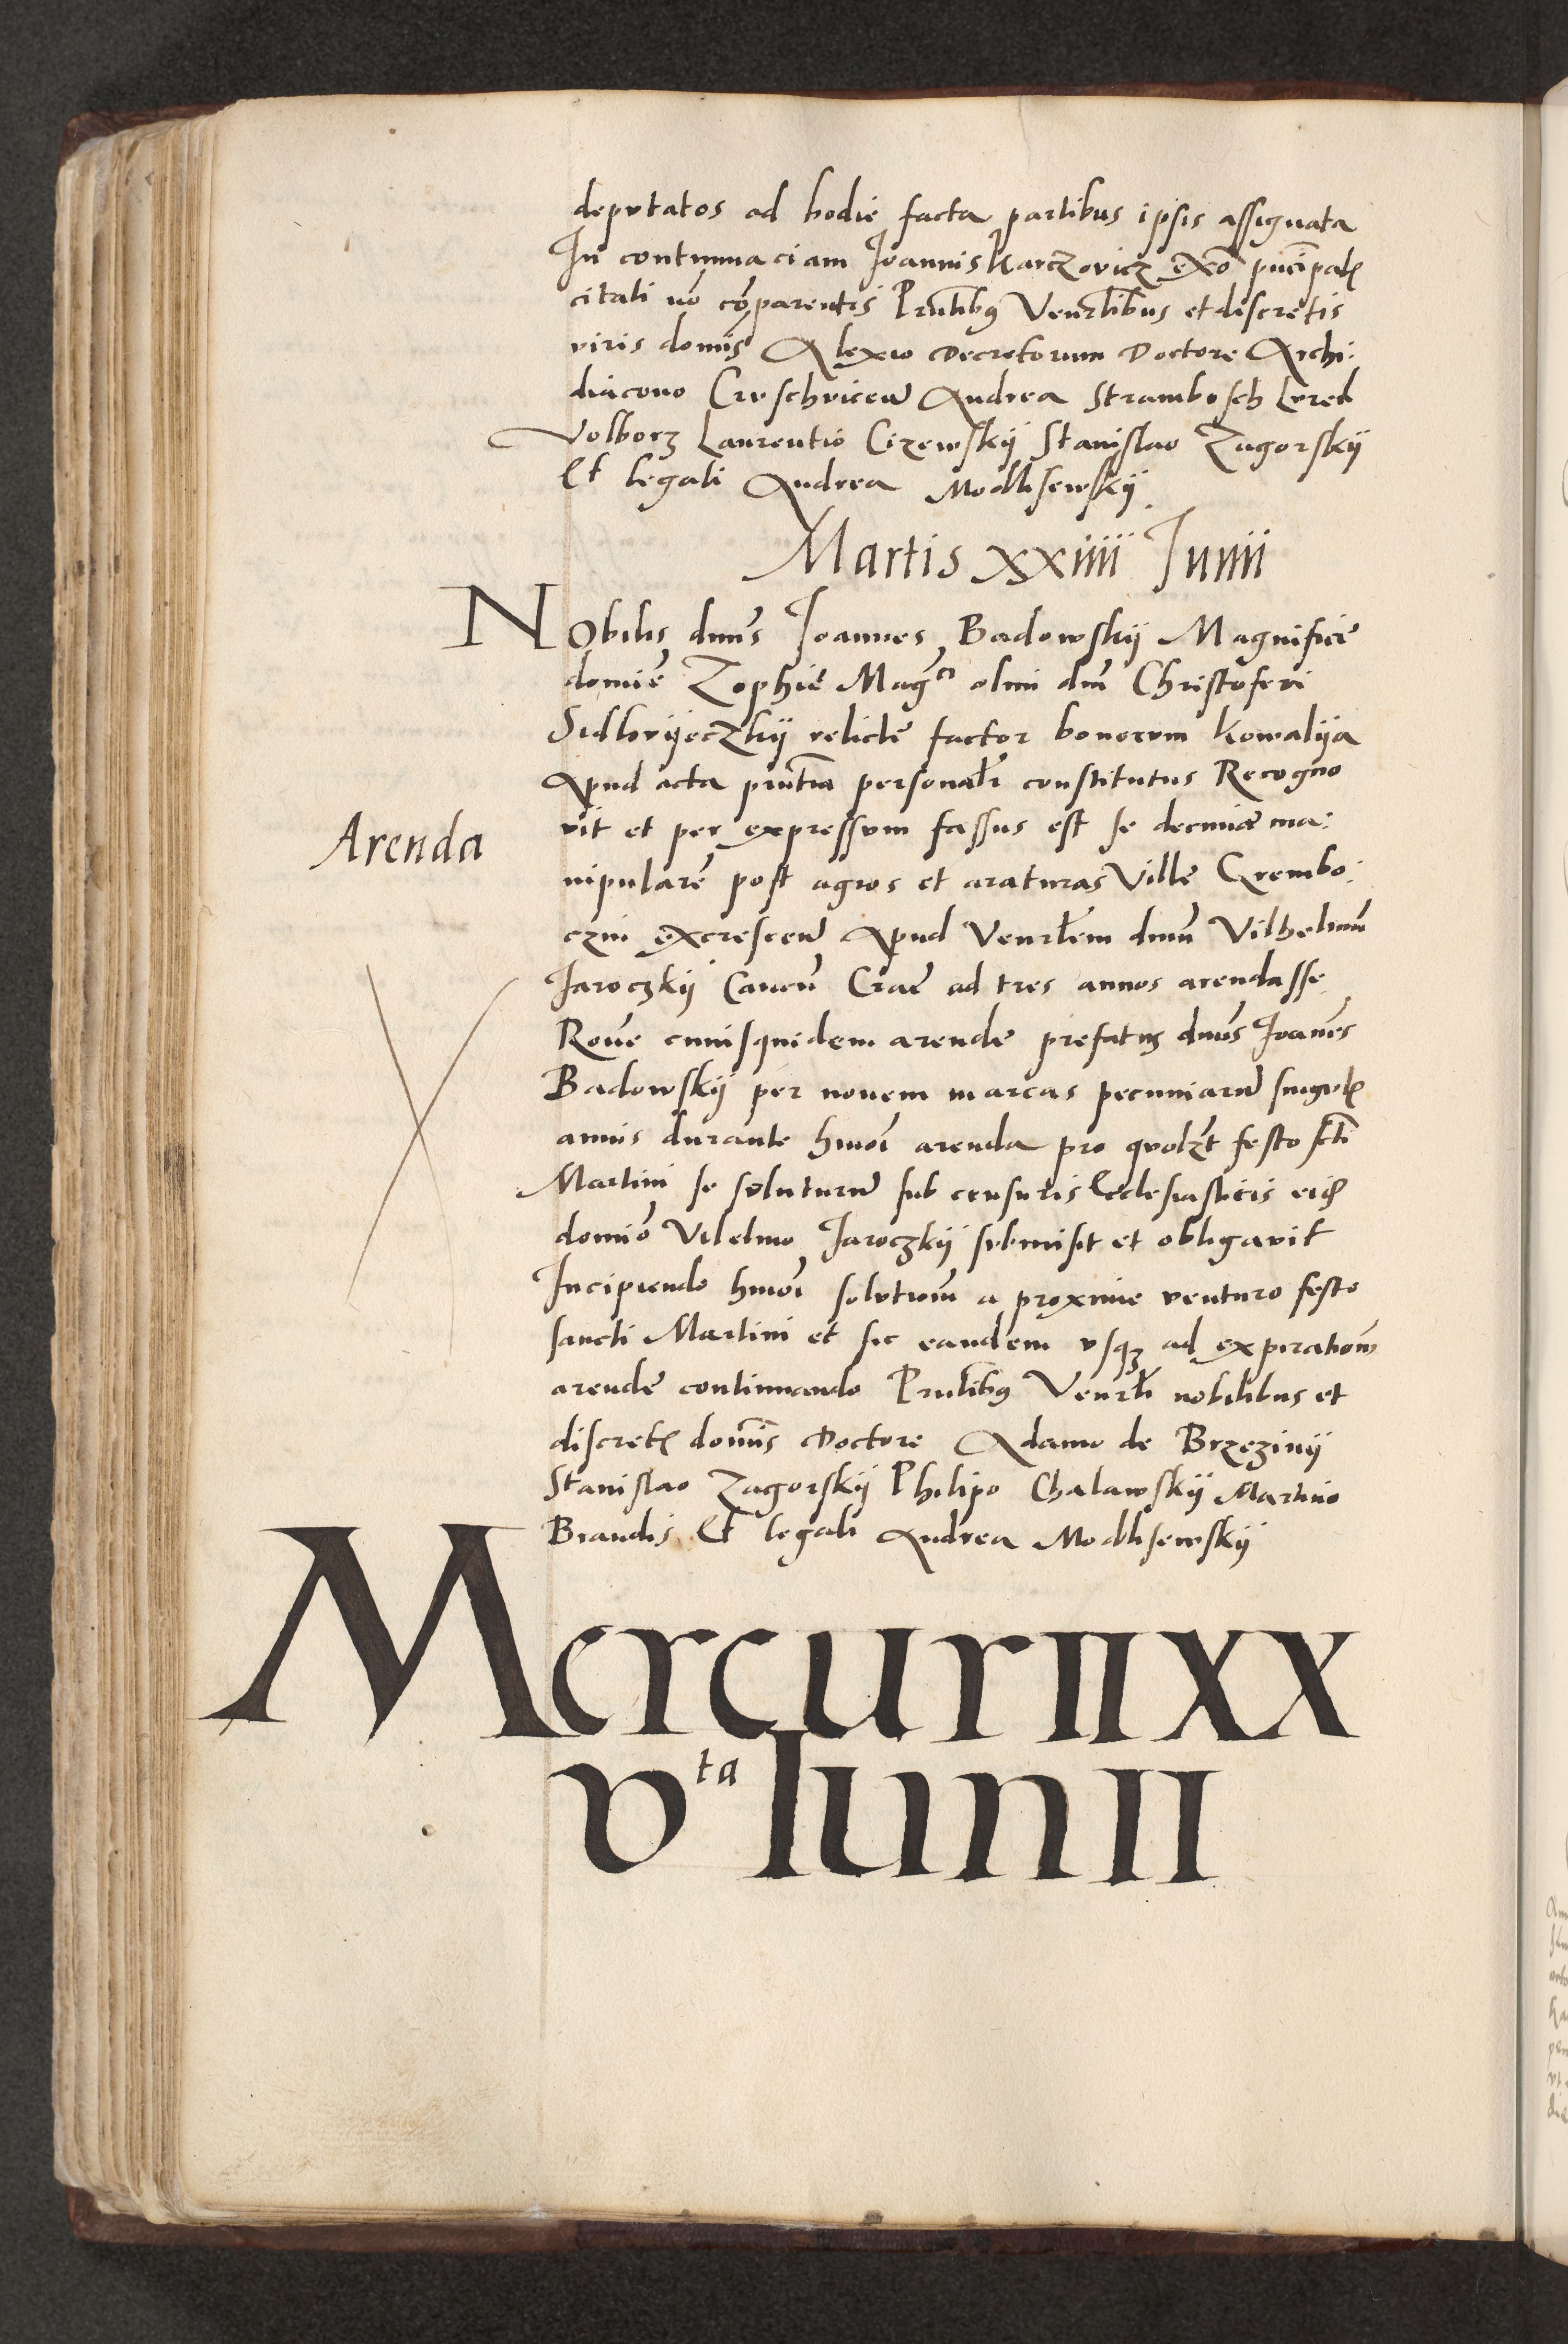 deputatos ad hodie facta partibus ipsis assignata
In contumaciam Joannis Karczovicz exõ prĩcipal
citati nõ cõparentis Prñtibus Venerlibus et discretis
viris domĩs Alexio Decretorum Doctore Archi:
diacono Cruschvicen Andrea Strambosch
Volborz Laurentio Cizewskÿ Stanislao Zagorskÿ
Et legali Andrea Modlisewskÿ
Martis xxiiii Junii
Nobilis dnũs Joannes Badowskÿ Magnificẽ
domiẽ Zophiẽ Magci olim dñi Christoferi
relictẽ factor bonorum Kowalÿa
Apud acta prñtia personalr constitutus Recogno
vit et per expressum fassus est se decimã ma:
Arenda
nipularẽ post agros et araturas Villẽ Crembo:
czin excrescen Apud Venerlem dnũm Vilhelmũ
Jaroczkÿ Canoñ Cracẽ ad tres annos arendasse
Rõne cuiusquidem arendẽ prefatus dnũs Joañes
Badowskÿ per novem marcas pecuniarũ singul
annis durante hmõi arenda pro quolzt festo scti
Martini se soluturũ sub censuris Ecclesiasticis eid
domiõ Vilelmo Jaroczkÿ submisit et obligavit
Incipiendo hmõi solutionẽ a proxime venturo festo
sancti Martini et sic eandem usqz ad expirationẽ
arendẽ continuando Prñtibus Venerli nobilibus et
discret domĩs Doctore Adamo de Brzezinÿ
Stanislao Zagorskÿ Philipo Chalawskÿ Martino
Brandis Et legali Andrea Modlisewskÿ
Mercurii xx
vta Iunii